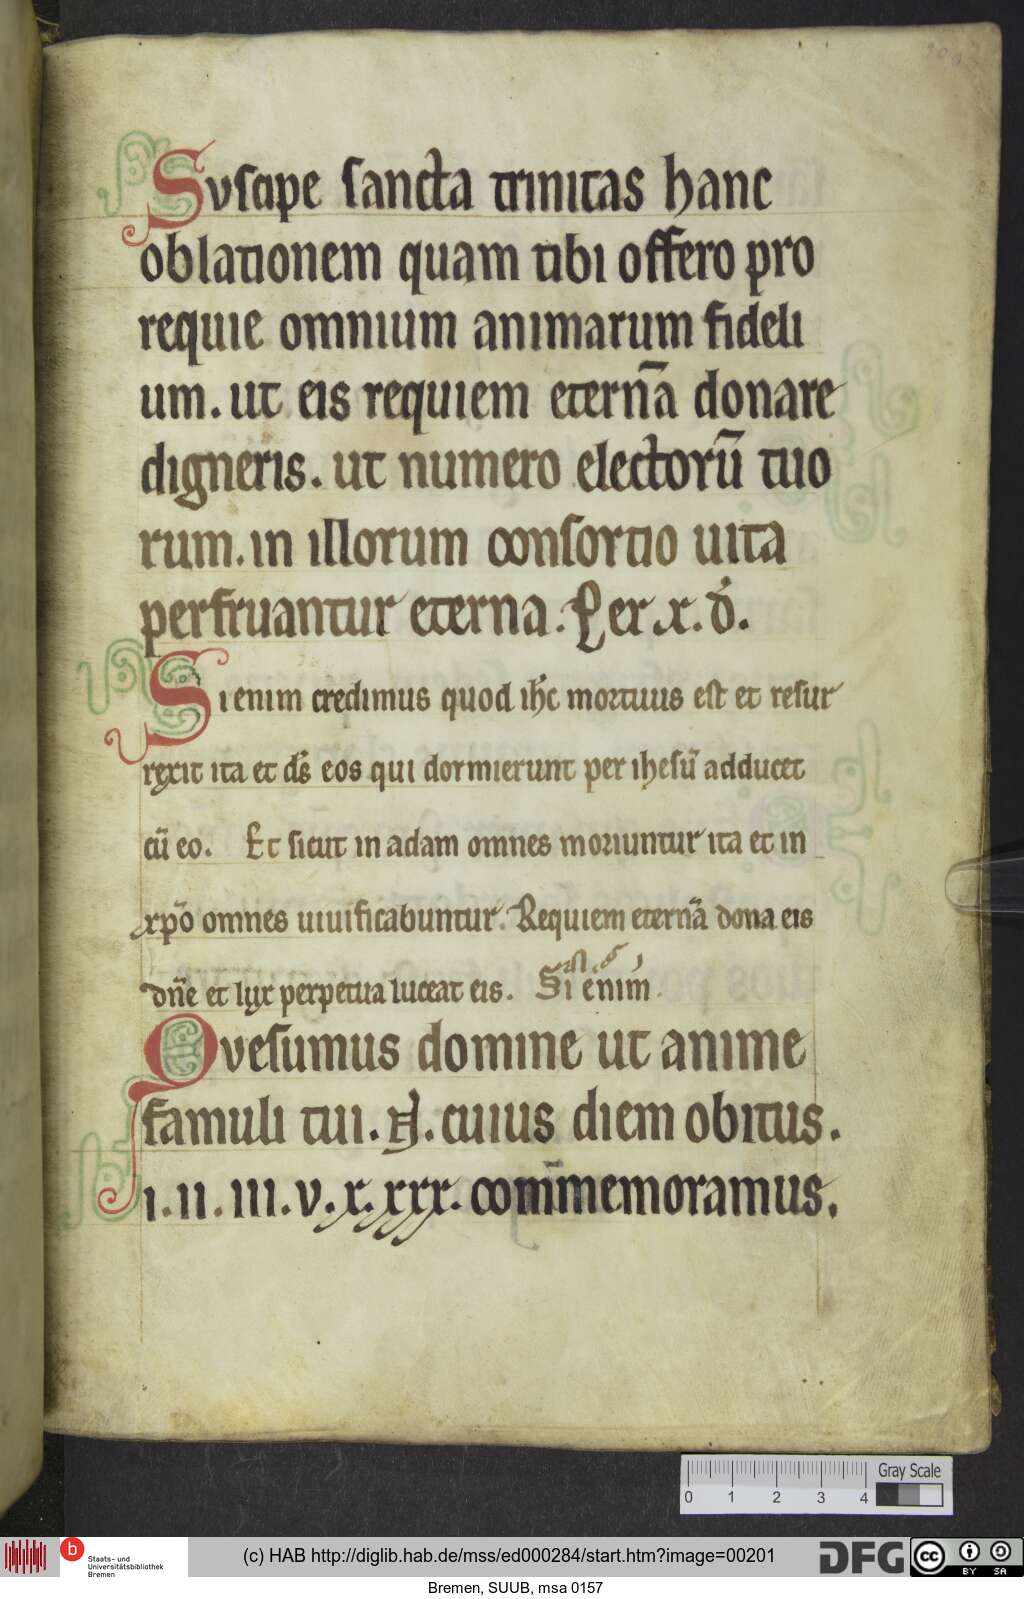 Suscipe sancta trinitas hanc
oblationem quam tibi offero pro
requie omnium animarum fideli
um. ut eis requiem eternā donare
digneris. ut numero electorū tuo
rum. in illorum consortio uita
perfruantur eterna. Per x. d̄.
Si enim credimus quod ihc̄ mortuus est et resur
rexit ita et ds̄ eos qui dormierunt per ihesū adducet
cū eo. Et sicut in adam omnes moriuntur ita et in
xp̄o omnes uiuificabuntur. Requiem eternā dona eis
dn̄e et lux perpetua luceat eis. Si enim.
Quesumus domine ut anime
famuli tui. N. cuius diem obitus.
i. ii. iii. v. x. xxx. com̄memoramus.
Gray Scale
0 1 2 3 4
b Staats- und
Universitätsbibliothek
Bremen
(c) HAB http://diglib.hab.de/mss/ed000284/start.htm?image=00201
DFG
cc BY SA
Bremen, SUUB, msa 0157